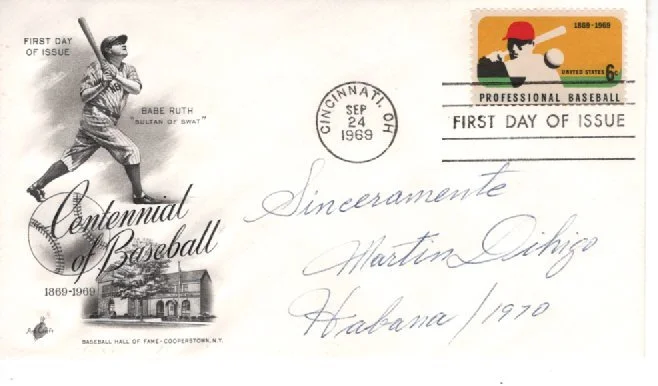 FIRST DAY
OF ISSUE
BABE RUTH
"SULTAN OF SWAT"
Centennial
of Baseball
1869-1969
BASEBALL HALL OF FAME-COOPERSTOWN, N.Y.
CINCINNATI, OH
SEP
24
1969
1869-1969
UNITED STATES 6c
PROFESSIONAL BASEBALL
FIRST DAY OF ISSUE
Sinceramente
Martin Dihigo
Habana/1970